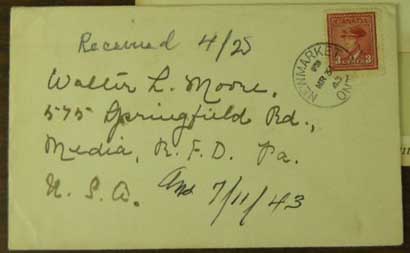 Received 4/25
CANADA
3 CENTS 3
NEWMARKET ONT
43
Walter L. Moore,
575 Springfield Rd.,
Media, R.F.D. Pa.
U.S.A. Ans 7/11/43